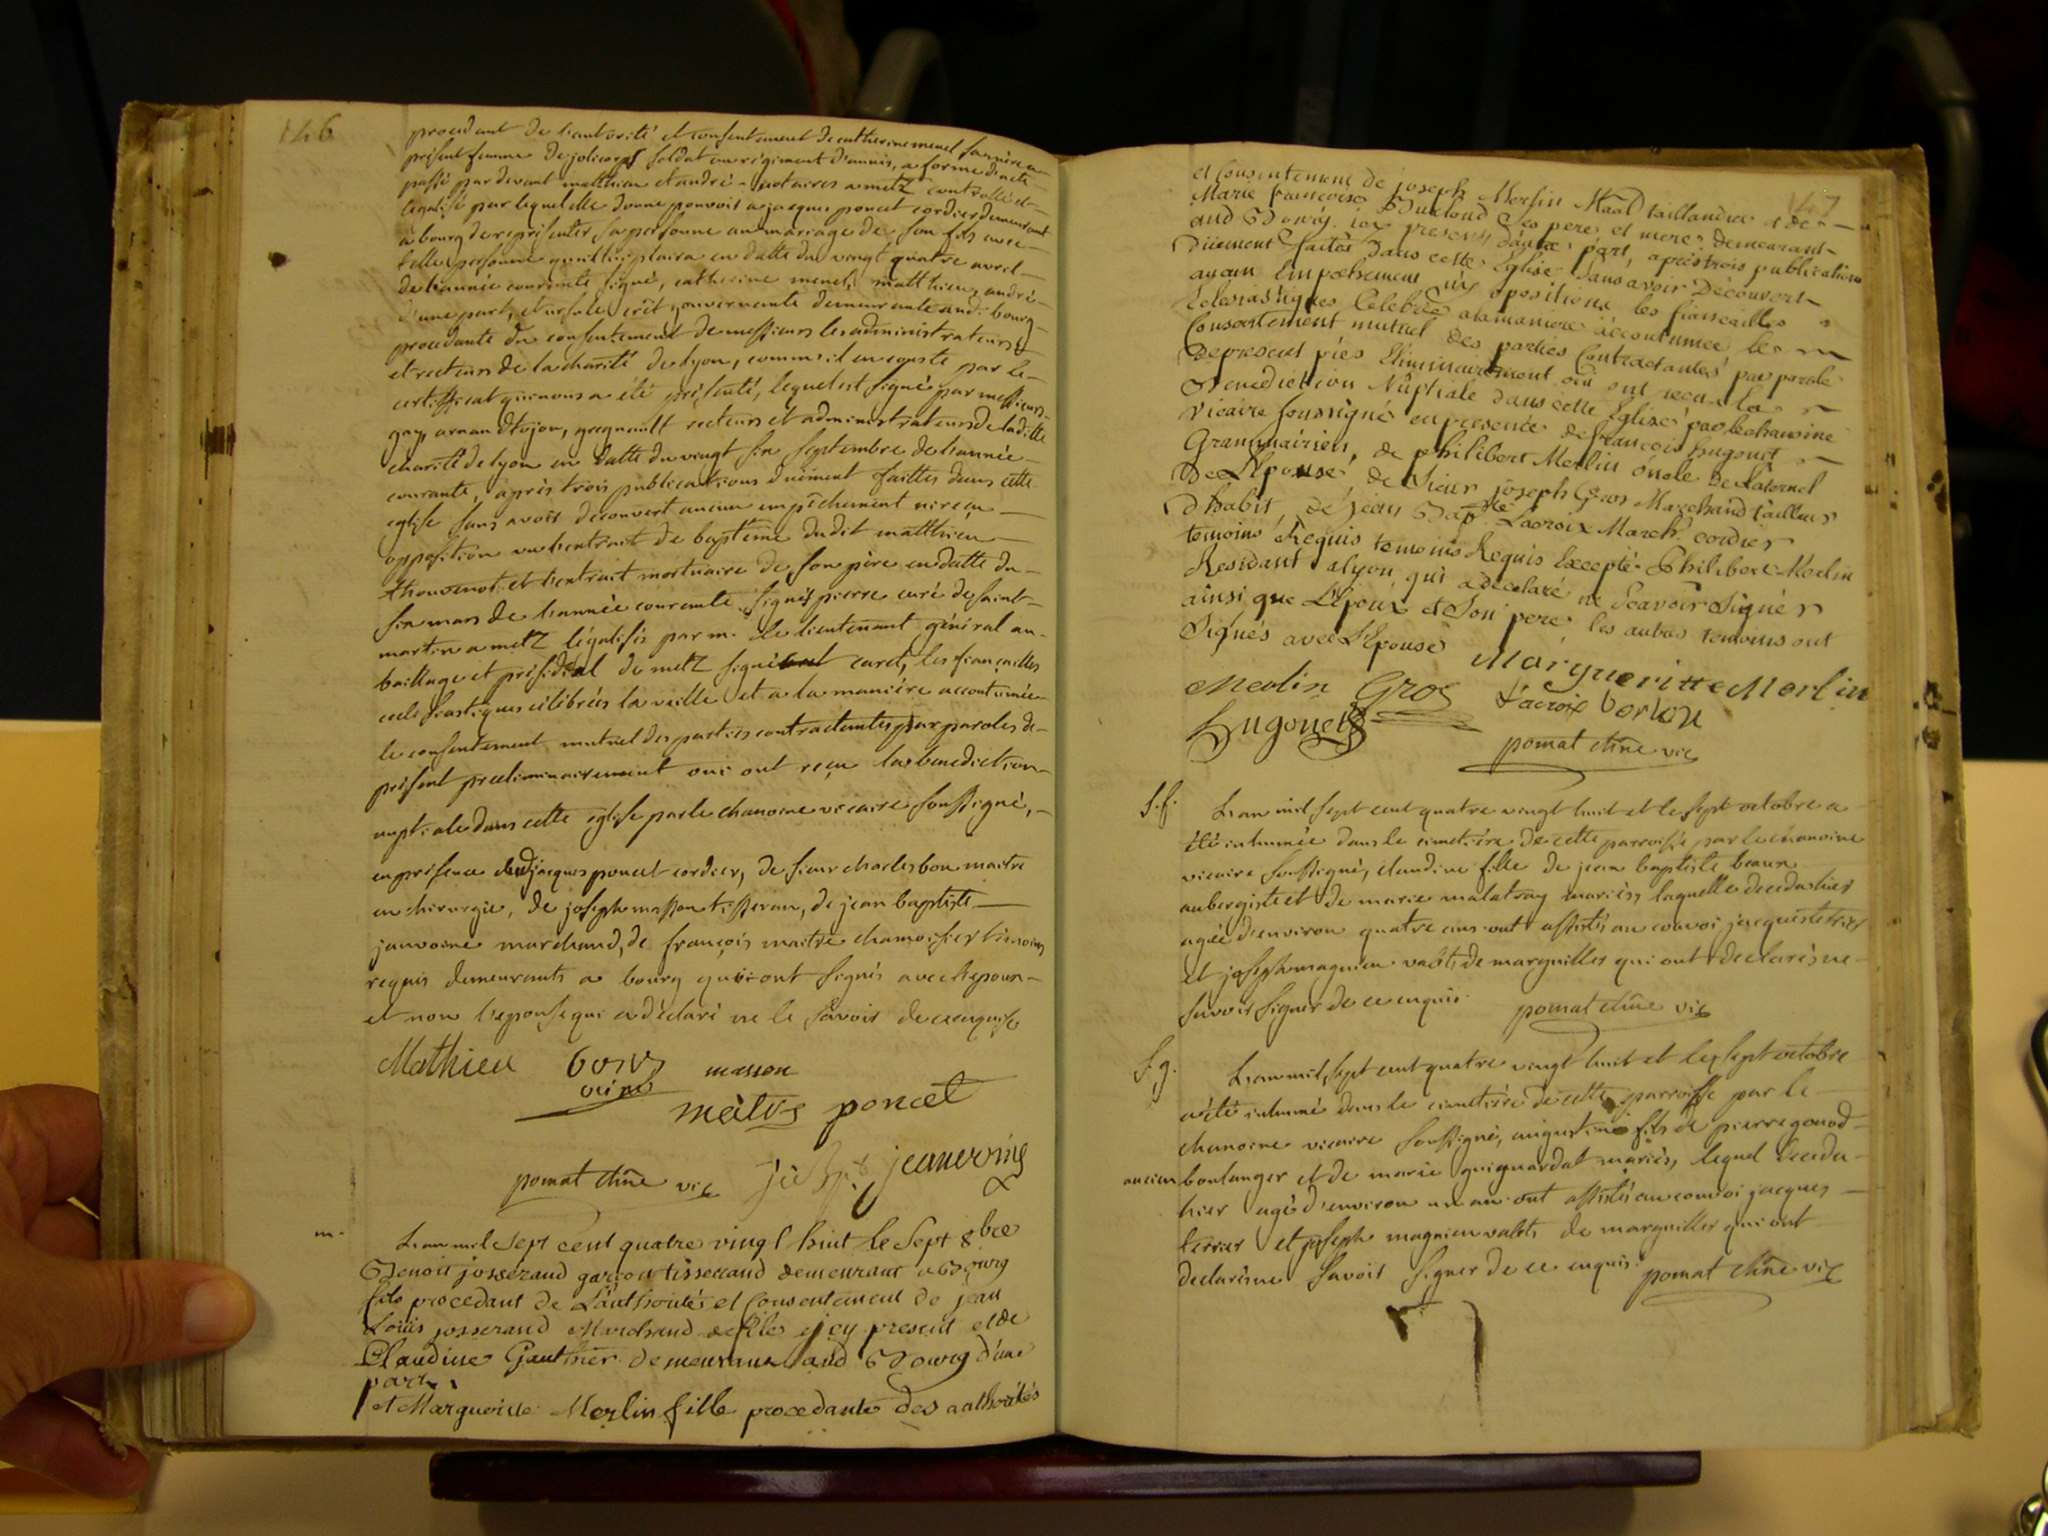 146
procedant de l'autorité et consentement de catherine menel sa mère a
présent femme de jolicorps soldat au régiment d'aunis, a forme d'acte
passé par devant matthieu et andré notaires a metz controllé et
légalisé par lequel elle donne pouvoir a jacques poncet cordier demeurant
à bourg de représenter sa personne au mariage de son fils avec
telle personne qu'il lui plaira en datte du vingt quatre avril
de l'année courante signé, catherine menel, matthieu, andré
d'une part, et ursule crét gouvernante demeurante audit bourg
procedante du consentement de messieurs les administrateurs
et recteurs de la charité de lyon, comme il en conste par le
certifficat qui nous a été présenté, lequel est signé par messieurs
gay, arnaud tojon, gregnault recteurs et administrateurs de laditte
charité de lyon en datte du vingt six septembre de l'année
courante, après trois publications duëment faittes dans cette
eglise sans avoir decouvert aucun empêchement ni reçu
opposition vu l'extrait de baptême dudit matthieu
thouvenot et l'extrait mortuaire de son père en datte du
six mars de l'année courante signés pierre curé de saint
martin a metz légalisés par m. le lieutenant général au
bailliage et présidial de metz signé curel, les fiançailles
ecclesiastiques célébrées la veille et a la manière accoutumée
le consentement mutuel des parties contractantes par paroles de
présent preliminairement oui ont reçu la benediction
nuptiale dans cette eglise par le chanoine vicaire soussigné,
en présence dudjacques poncet cordier, de sieur charles bon maitre
en chirurgie, de joseph masson tisseran, de jean baptiste
janvoine marchand, de françois maitre chamoisier témoins
requis demeurants a bourg qui ont signés avec l'epoux
et non l'epouse qui a déclaré ne le savoir de ce enquise
Mathieu bon masson
poncet
pomat chne vic j: Bpt
m.
L'an mil sept cent quatre vingt huit le sept 8bre
Benoit josserand garçon tisserand demeurant a Bourg
fils procedant de L'authorités et Consentement de jean
Loüis josserand Marchand de fil icy present et de
Claudine Gauthier demeurant aud Bourg d'une
part
et Marguerite Merlin fille procedante des authorités
147
et Consentement de joseph Merlin Maal taillandier et de
Marie francoise Buxloud ses pere et mere demeurant
aud Bourg icy presents d'autre part, après trois publications
Düement faites Dans cette Eglise sans avoir Découvert
aucun Empechement ny opositions les fiancailles
Eclesiastiques Celebrée a la maniere accoutumée le
Consentement mutuel des parties Contractantes par parole
De present pres Eliminairement oüi ont recu La
Benediction Nuptiale Dans cette Eglise par le chanoine
Vicaire soussigné en presence de francois hugonet
Grammairien, de philibert Merlin oncle Paternel
De L'Epouse, de Sieur joseph Gros Marchand tailleur
D'habit, de jean Bapte Lacroix March. cordier
temoins Requis temoins Requis Excepté Philibert Merlin
Residant a lyon qui a declaré ne Scavoir Signer
ainsi que L'Epoux et Son pere, les autres temoins ont
Signés avec L'Epouse
Margueritte Merlin
Merlin Gros Lacroix
hugonet
pomat chne vic
S.f.
L'an mil sept cent quatre vingt huit et le sept octobre a
été inhumée dans le cimetière de cette parroisse par le chanoine
vicaire soussigné, claudine fille de jean baptiste beaux
aubergiste et de marie malatray mariés, laquelle deceda hier
agée d'environ quatre ans ont assistés au convoi jacques terrier
et joseph magnien valets de marguilles qui ont declarés ne
savoir signer de ce enquis
pomat chne vic
S.g.
L'an mil sept cent quatre vingt huit et le sept octobre
a été inhumé dans le cimetière de cette parroisse par le
chanoine vicaire soussigné, augustin fils de pierre gonod
ancien boulanger et de marie guiguardat mariés, lequel deceda
hier agé d'environ un an ont assistés au convoi jacques
terrier et joseph magnien valets de marguilles qui ont
declarés ne savoir signer de ce enquis
pomat chne vic